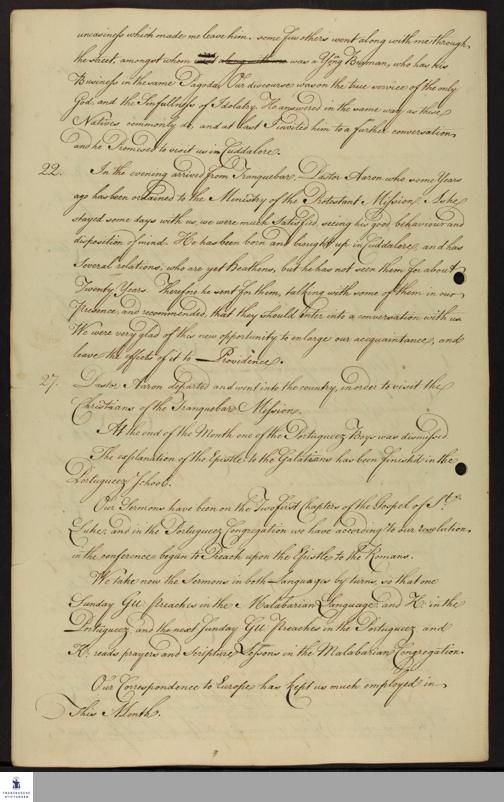 uneasiness which made me leave him. some few others went along with me through
the street, amongst whom was a Yong Braman, who has his
Business in the same Pagoda. Our discourse was on the true service of the only
God, and the Sinfullness of Idolatry. He answered in the same way as these
Natives commonly do, and at last I invited him to a further conversation,
and he Promised to visit us in Cuddalore.
22. In the evening arrived from Tranquebar, Pastor Aaron who some Years
ago has been ordained to the Ministry of the Protestant Mission. As he
stayed some days with us, we were much Satisfied, seeing his good behaviour and
disposition of mind. He has been born and brought up in Cuddalore, and has
Several relations, who are yet Heathens, but he has not seen them for about
Twenty Years. Therefore he sent for them, talking with some of them in our
Presence, and recommended, that they should Enter into a conversation with us.
We were very glad of this new opportunity to enlarge our acquaintance, and
leave the effects of it to Providence.
27. Pastor Aaron departed and went into the country, in order to visit the
Christians of the Tranquebar Mission.
At the end of the Month one of the Portugueez Boys was dismissed
The explanation of the Epistle to the Galatians has been finish'd in the
Portugueez School.
Our Sermons have been on the Two first Chapters of the Gospel of St.
Luke, and in the Portugueez Congregation we have according to our resolution
in the conference begun to Preach upon the Epistle to the Romans.
We take now the Sermons in both Languages by turns, so that one
Sunday Gu: Preaches in the Malabarian Language, and K: in the
Portugueez, and the next Sunday Gu: Preaches in the Portugueez and
K: reads prayers and Scripture Lessons in the Malabarian Congregation.
Our Correspondence to Europe has kept us much employed in
This Month.
FRANCKESCHE
STIFTUNGEN